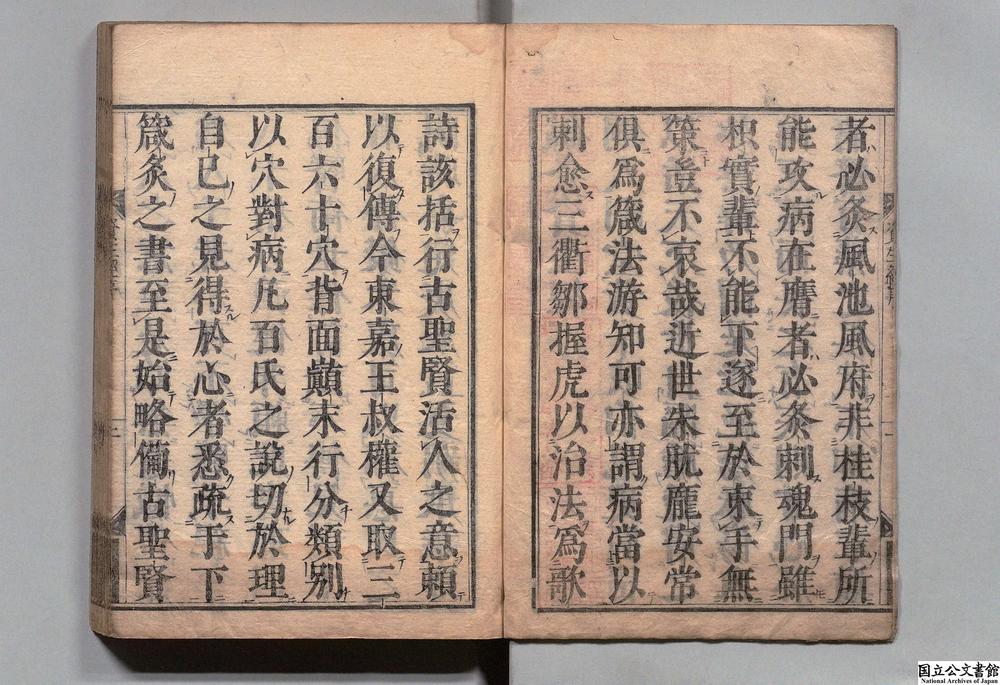 者必灸風池風府非桂枝輩所
能攻病在膺者必灸刺魂門雖
枳實輩不能下遂至於束手無
策豈不哀哉近世朱肱龐安常
俱爲箴法游知可亦謂病當以
刺愈三衢鄒握虎以治法爲歌
詩該括行古聖賢活人之意頼
以復傳今東嘉王叔權又取三
百六十穴背面巔末行分類別
以穴對病凡百氏之說切於理
自己之見得於心者悉疏于下
箴灸之書至是始略備古聖賢
国立公文書館
National Archives of Japan